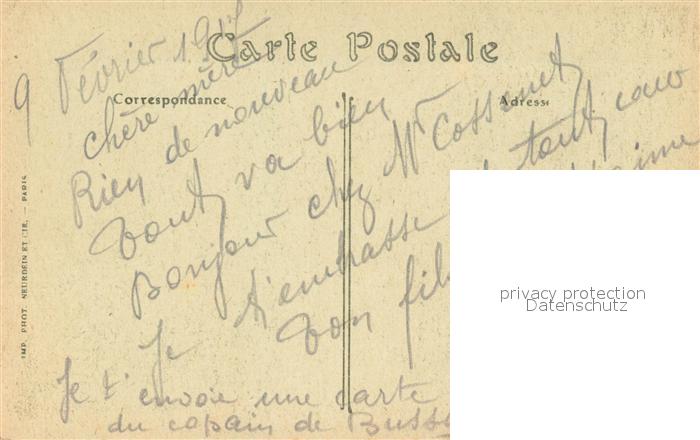 Carte Postale
Correspondance
Adresse
9 Février 1917
chère mère
Rien de nouveau
tout va bien
Bonjour chez Mr Cossenet
tout cœur
Je t'embrasse
ton fils
Je t'envoie une carte
du copain de
IMP. PHOT. NEURDEIN ET CIE. — PARIS
privacy protection
Datenschutz